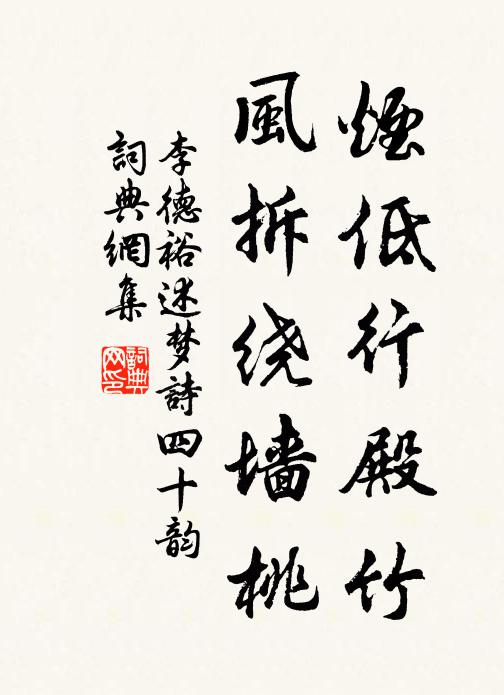 煙低行殿竹
風拆绕墙桃
李德裕述梦詩四十韵
詞典網集
詞典网印